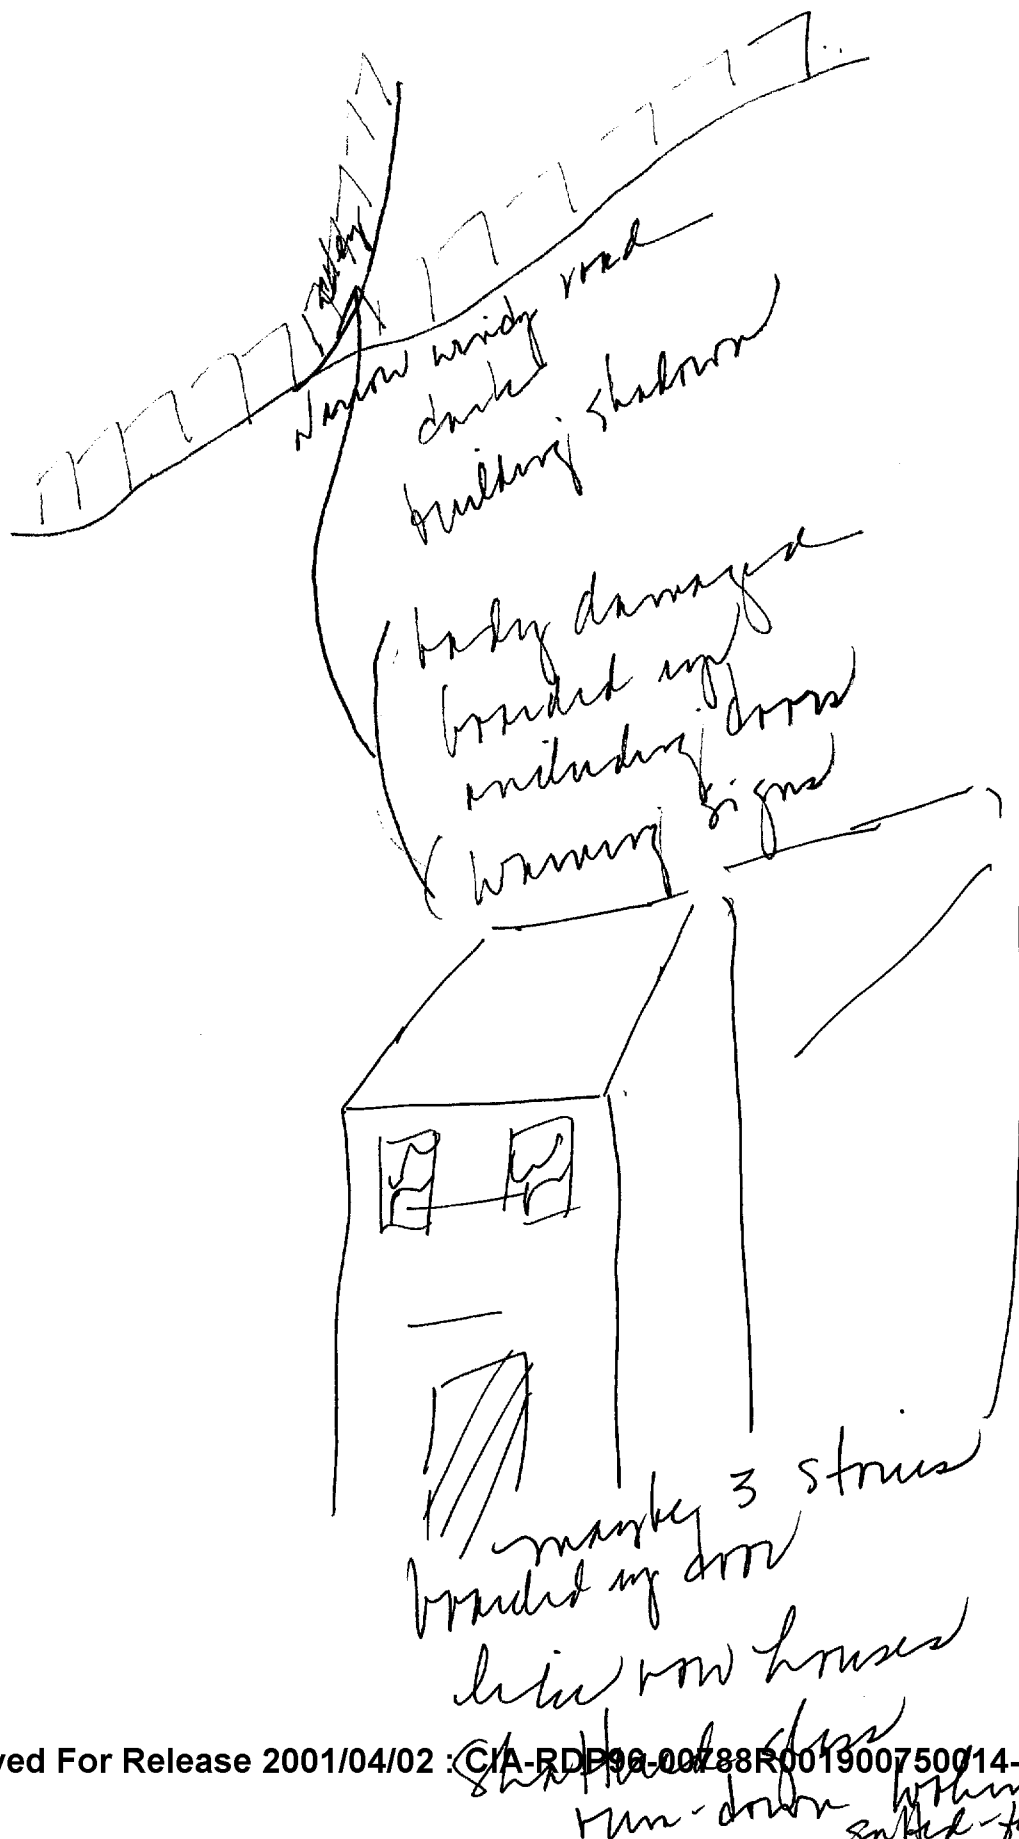 Narrow windy road
dark
building shadows
badly damaged
boarded up
including doors
warning signs
maybe 3 stories
boarded up door
like row houses
Shattered glass
ved For Release 2001/04/02 : CIA-RDP96-00788R001900750014-
run-down